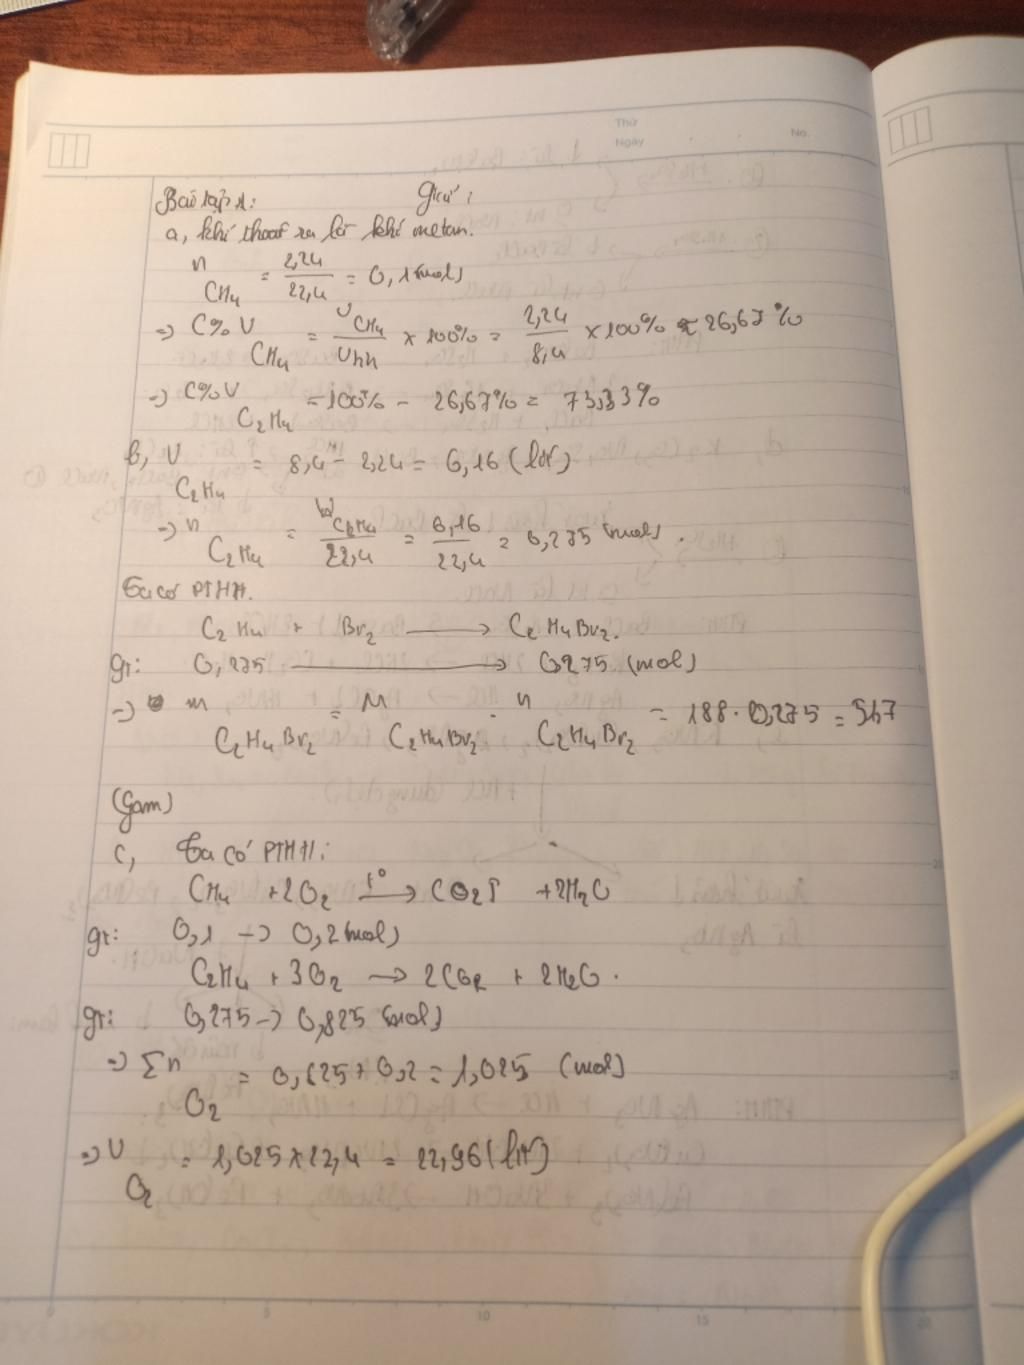 Thứ
Ngày
No.
Bài tập 1: Giải:
a, khí thoát ra là khí metan.
n CH4 = 2,24/22,4 = 0,1 (mol)
=> C% V CH4 = V CH4/Vhh × 100% = 2,24/8,4 × 100% ≈ 26,67%
=> C% V C2H4 = 100% - 26,67% = 73,33%
b, V C2H4 = 8,4 - 2,24 = 6,16 (lít)
=> n C2H4 = V C2H4/22,4 = 6,16/22,4 = 0,275 (mol).
Ta có PTHH.
C2H4 + Br2 ⟶ C2H4Br2.
gt: 0,275 ⟶ 0,275 (mol)
=> m C2H4Br2 = M C2H4Br2 . n C2H4Br2 = 188 . 0,275 = 51,7
(gam)
c, Ta có PTHH:
CH4 + 2O2 t°⟶ CO2↑ + 2H2O
gt: 0,1 -> 0,2 (mol)
C2H4 + 3O2 ⟶ 2CO2 + 2H2O.
gt: 0,275 -> 0,825 (mol)
=> Σn O2 = 0,825 + 0,2 = 1,025 (mol)
=> V O2 = 1,025 × 22,4 = 22,96 (lít)
0 5 10 15 20